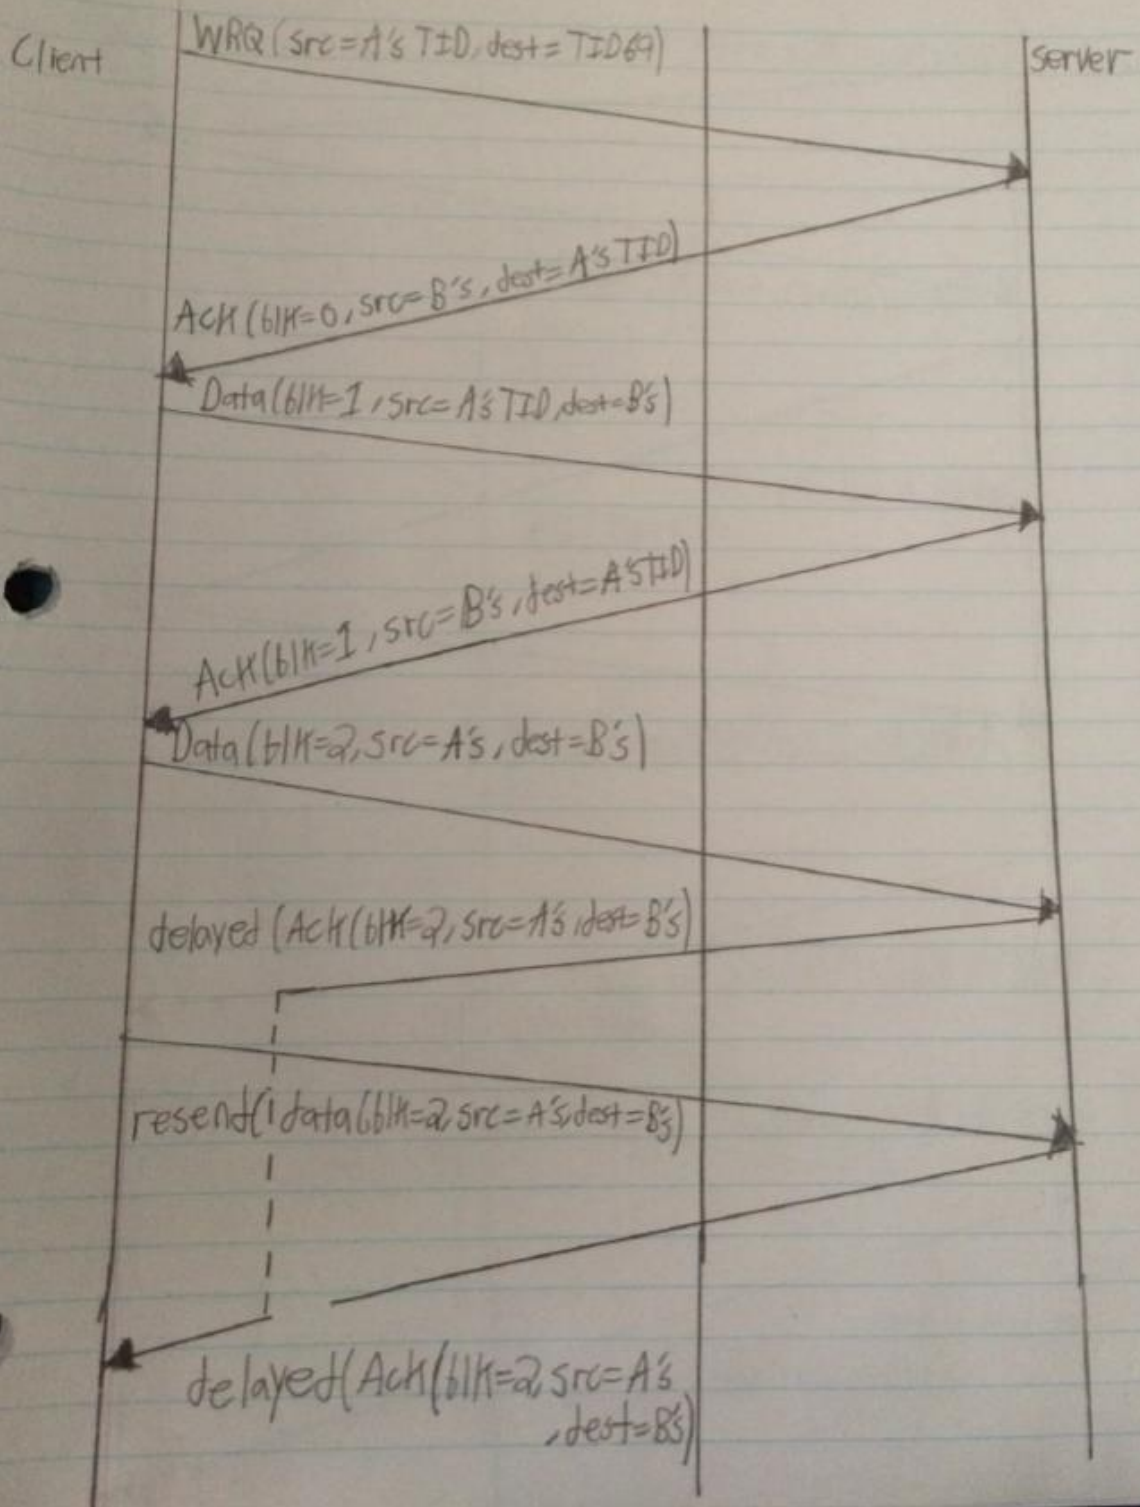 Client
WRQ(src=A's TID, dest=TID69)
Server
Ack(blk=0, src=B's, dest=A's TID)
Data(blk=1, src=A's TID, dest=B's)
Ack(blk=1, src=B's, dest=A's TID)
Data(blk=2, src=A's, dest=B's)
delayed(Ack(blk=2, src=A's, dest=B's)
resend(data(blk=2, src=A's, dest=B's)
delayed(Ack(blk=2, src=A's
, dest=B's)